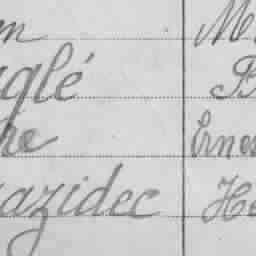 en M
glé B
re Ernes
azidec He